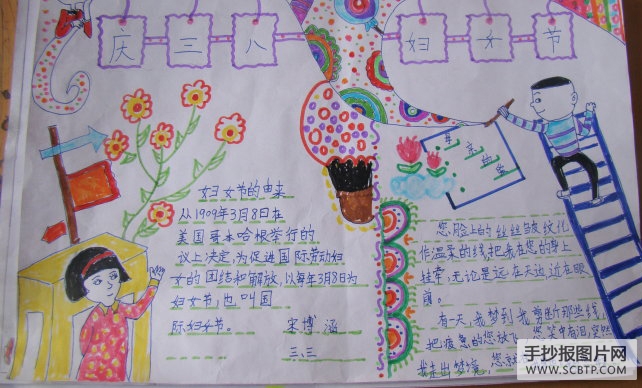 庆三八
妇女节
妇女节的由来
从1909年3月8日在
美国哥本哈根举行的
议上决定,为促进国际劳动妇
女的团结和解放,以每年3月8日为
妇女节,也叫国
际妇女节。
宋博涵
三、三
您脸上的丝丝皱纹化
作温柔的线,把我在您的身上
挂牵,无论是远在天边,近在眼
前。
有一天,我梦到我剪断那些线,
把疲惫的您放飞,您笑中有泪,突然
我走出梦境,您
手抄报图片网
WWW.SCBTP.COM